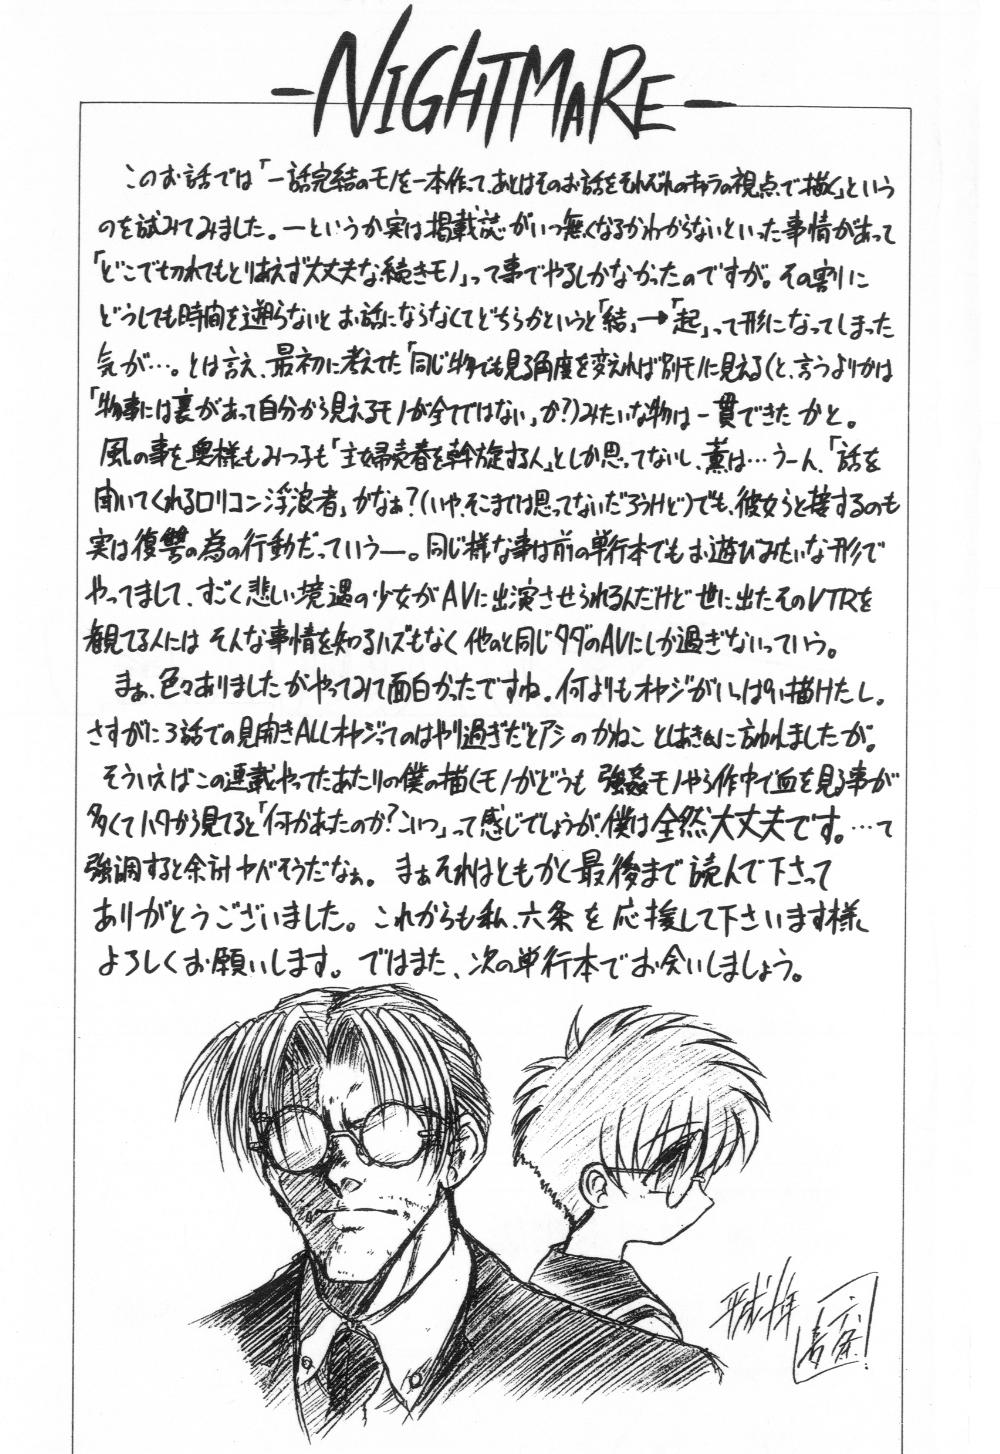 -NIGHTMARE-
このお話では「一話完結のモノを一本作って、あとはそのお話をそれぞれのキャラの視点で描く」という
のを試みてみました。ーというか実は掲載誌がいつ無くなるかわからないといった事情があって
「どこで切れてもとりあえず大丈夫な続きモノ」って事でやるしかなかったのですが。その割に
どうしても時間を遡らないとお話にならなくてどちらかというと「結」→「起」って形になってしまった
気が…。とは言え、最初に考えてた「同じ物でも見る角度を変えれば別モノに見える(と、言うよりかは
「物事には裏があって自分から見えるモノが全てではない」か?)みたいな物は一貫できたかと。
風の事を奥様もみつ子も「主婦売春を斡旋する人」としか思ってないし、薫は…うーん、「話を
聞いてくれるロリコン浮浪者」かなぁ?(いや、そこまでは思ってないだろうけど)でも、彼女らと接するのも
実は復讐の為の行動だっていうー。同じ様な事は前の単行本でもお遊びみたいな形で
やってまして、すごく悲しい境遇の少女がAVに出演させられるんだけど世に出たそのVTRを
観てる人にはそんな事情を知るハズもなく他のと同じタダのAVにしか過ぎないっていう。
まぁ、色々ありましたがやってみて面白かったですね。何よりもオヤジがいっぱい描けたし。
さすがに3話での見開きALLオヤジってのはやり過ぎだとアシのかねことしあきさんに言われましたが。
そういえばこの連載やってたあたりの僕の描くモノがどうも強姦モノやら作中で血を見る事が
多くてハタから見てると「何かあたのか?こいつ」って感じでしょうが、僕は全然大丈夫です。…て
強調すると余計ヤバそうだなぁ。まぁそれはともかく最後まで読んで下さって
ありがとうございました。これからも私、六条を応援して下さいます様、
よろしくお願いします。ではまた、次の単行本でお会いしましょう。
平成十年
六条